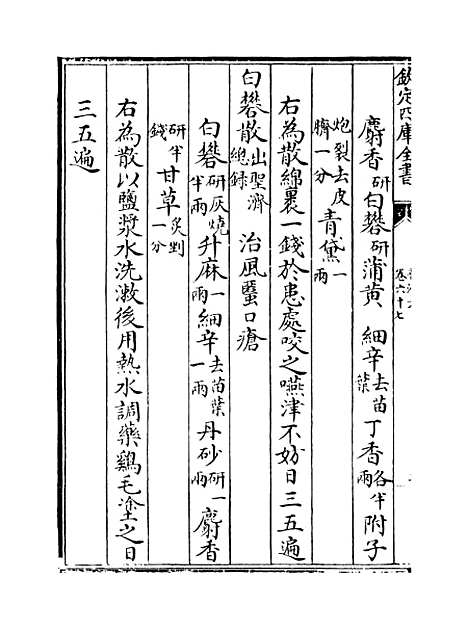 欽定四庫全書
卷六十七
麝香研白礬研蒲黄 細辛去苗葉丁香各半兩附子
炮裂去皮臍一分青黛一兩
右為散綿裹一錢於患處咬之嚥津不妨日三五遍
白礬散出聖濟總録 治風䘌口瘡
白礬研灰燒半兩升麻一兩細辛去苗葉一兩丹砂研一兩麝香
研半錢甘草炙剉一分
右為散以鹽漿水洗漱後用熱水調藥鷄毛塗之日
三五遍